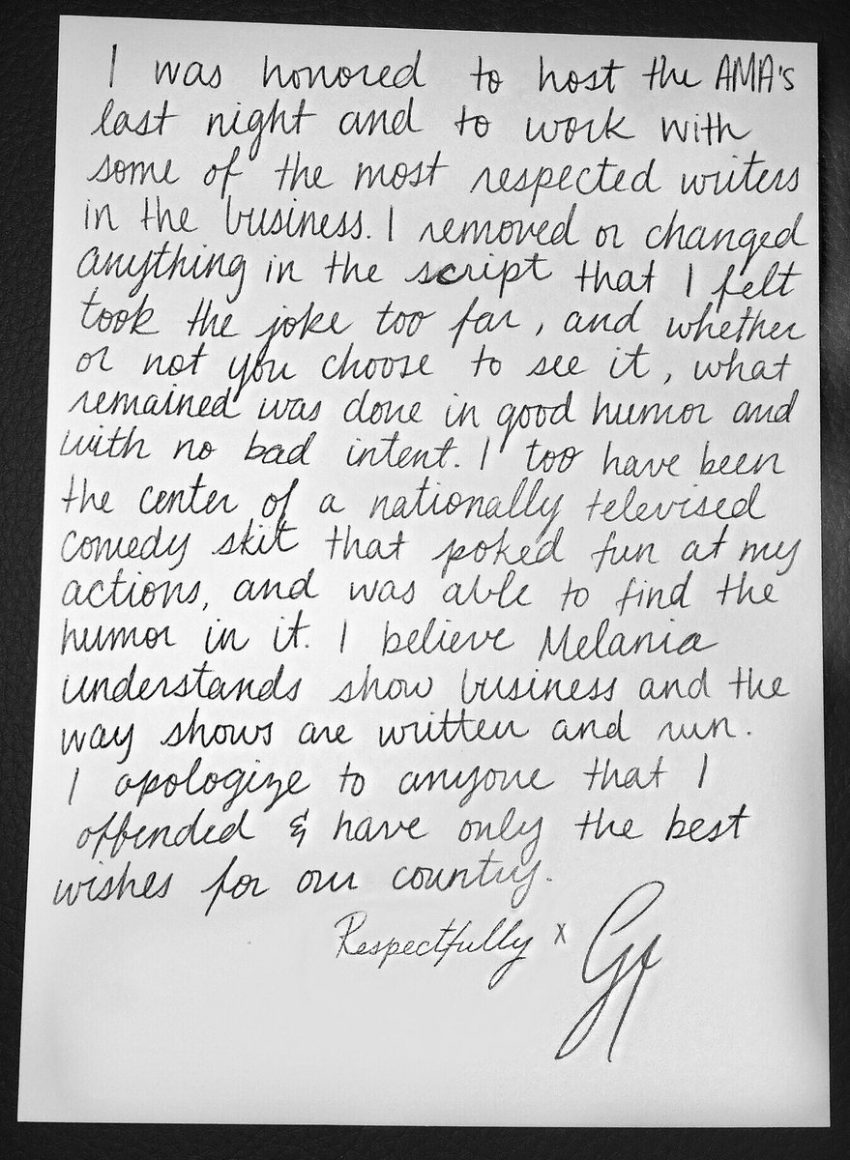 I was honored to host the AMA's
last night and to work with
some of the most respected writers
in the business. I removed or changed
anything in the script that I felt
took the joke too far, and whether
or not you choose to see it, what
remained was done in good humor and
with no bad intent. I too have been
the center of a nationally televised
comedy skit that poked fun at my
actions, and was able to find the
humor in it. I believe Melania
understands show business and the
way shows are written and run.
I apologize to anyone that I
offended & have only the best
wishes for our country.
Respectfully x